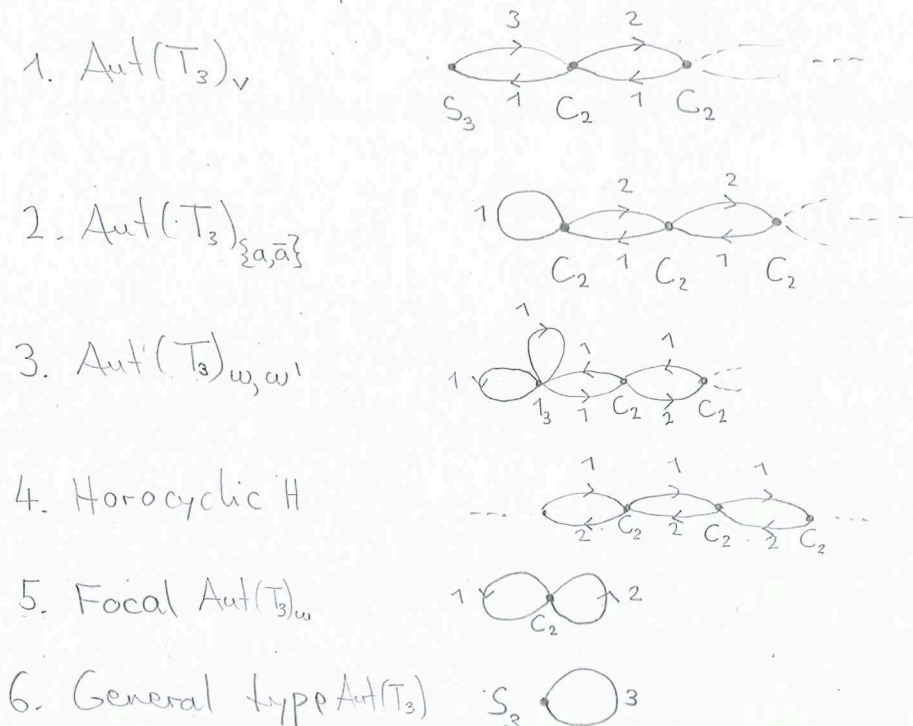 1. Aut(T₃)ᵥ
3 2
1 1
S₃ C₂ C₂
2. Aut(T₃){a,ā}
2 2
1
1 1
C₂ C₂ C₂
3. Aut(T₃)ω,ω'
1 1 1
1
1₃ 1 C₂ 2 C₂
4. Horocyclic H
1 1 1
2 C₂ 2 C₂ 2 C₂
5. Focal Aut(T₃)ω
1 2
C₂
6. General type Aut(T₃)
S₃ 3